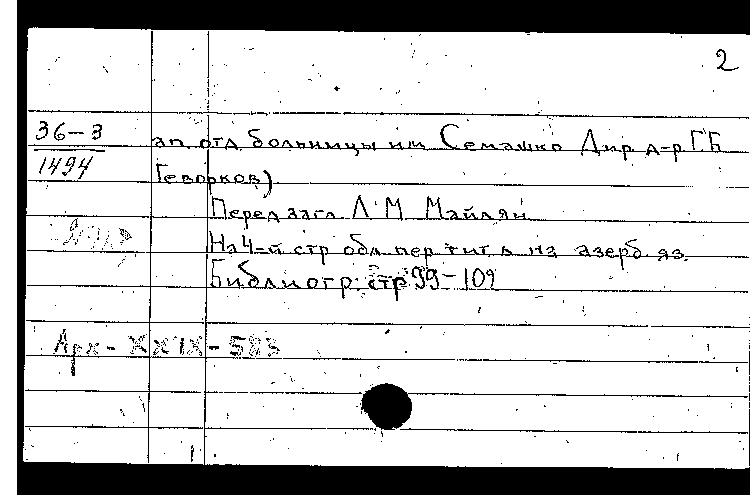 2
36-3
1494
ап. отд больницы им Семашко Дир д-р Г.Б
Геворков)
Перед загл Л М Майлян
На 4-й стр обл пер тит. л на азерб. яз.
Библиогр: стр 99-102
Арх - XXIX - 583